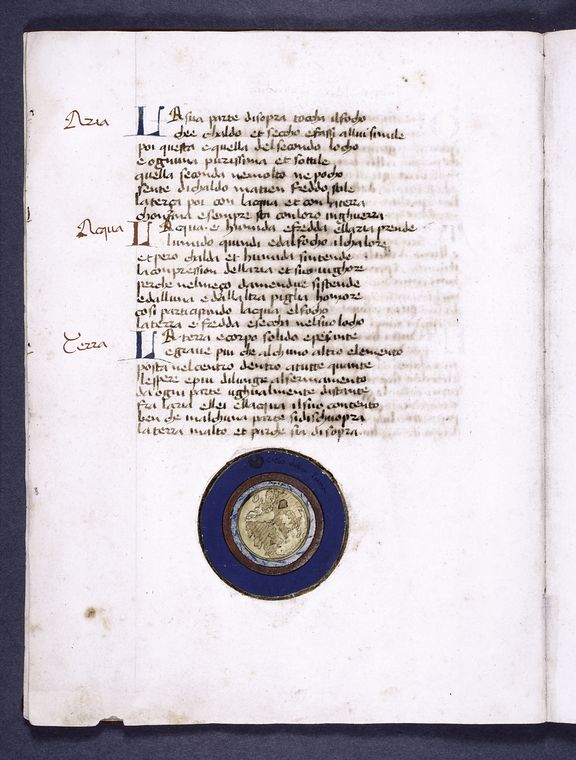 Aria
LA sua parte disopra toccha ilfocho
chee chaldo et seccho efassi allui simile
poi questa e quella del secondo locho
e ognuna purissima et sottile
quella seconda nemolto ne pocho
sente di chaldo matien freddo stile
la terça poi con lacqua et con laterra
chonfina e sempre sta con loro inghuerra
Acqua
LAcqua e humida e fredda ellaria prende
lumido quindi edalfocho ilchalore
et pero chalda et humida sintende
la compression dellaria et suo vighore
perche nelmeço damendue sistende
e dalluna e dallaltra piglia homore
cosi participando lacqua elfocho
la terra e fredda e seccha nelsuo locho
Terra
LA terra e corpo solido e pesante
e grave piu che alchuno altro elemento
posta nel centro dentro a tutte quante
lespere e piu dilungi alfermamento
da ogni parte ughualmente distante
fra laria ellei ellacqua il suo contento
ben che inalchuna parte si dischuopra
la terra molto et parche sia disopra